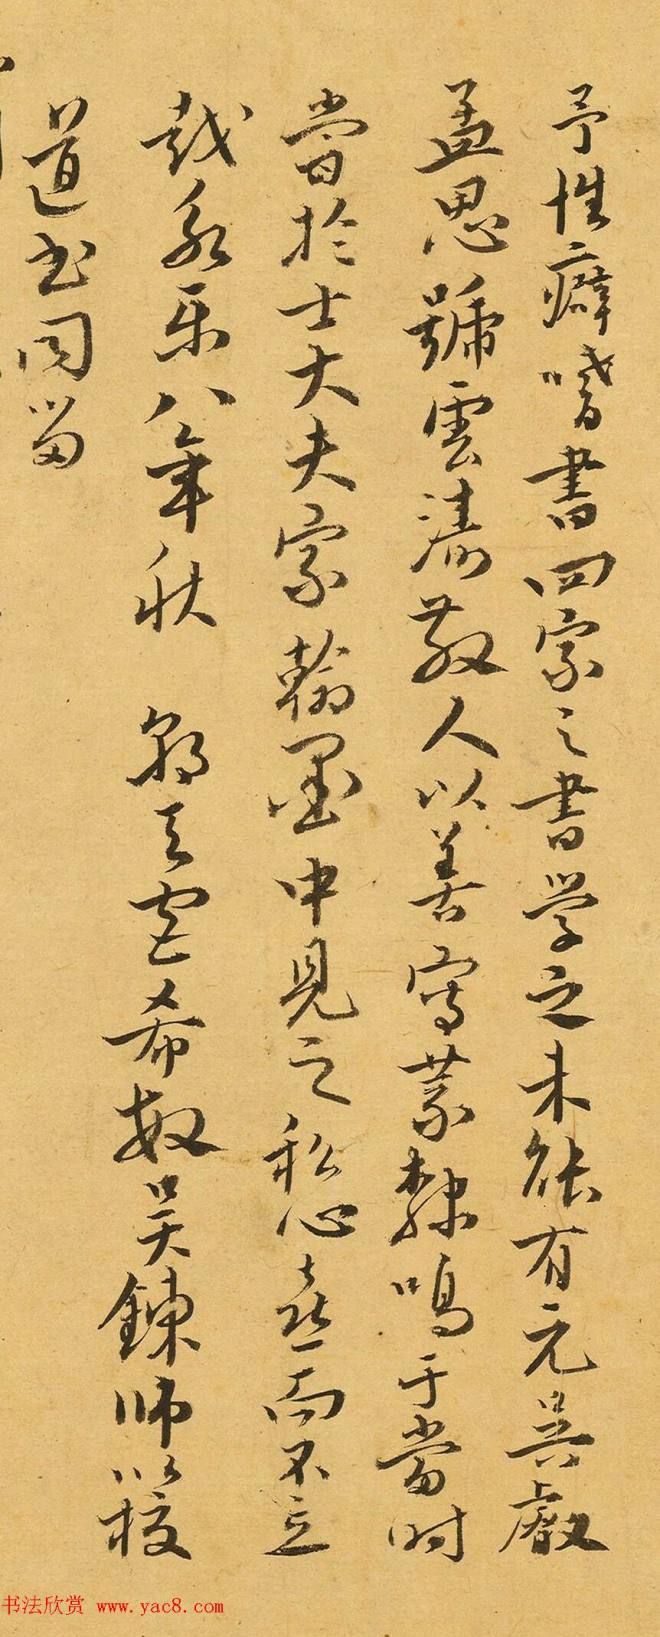 予性癖嗜書四家之書学之未能有元吳叡
孟思號雲濤散人以善寫篆隸鳴于當時
嘗於士大夫家翰墨中見之私心喜而不忘
越永乐八年秋 朝天宮希敏吳鍊師以校
道书同留
书法欣赏 www.yac8.com